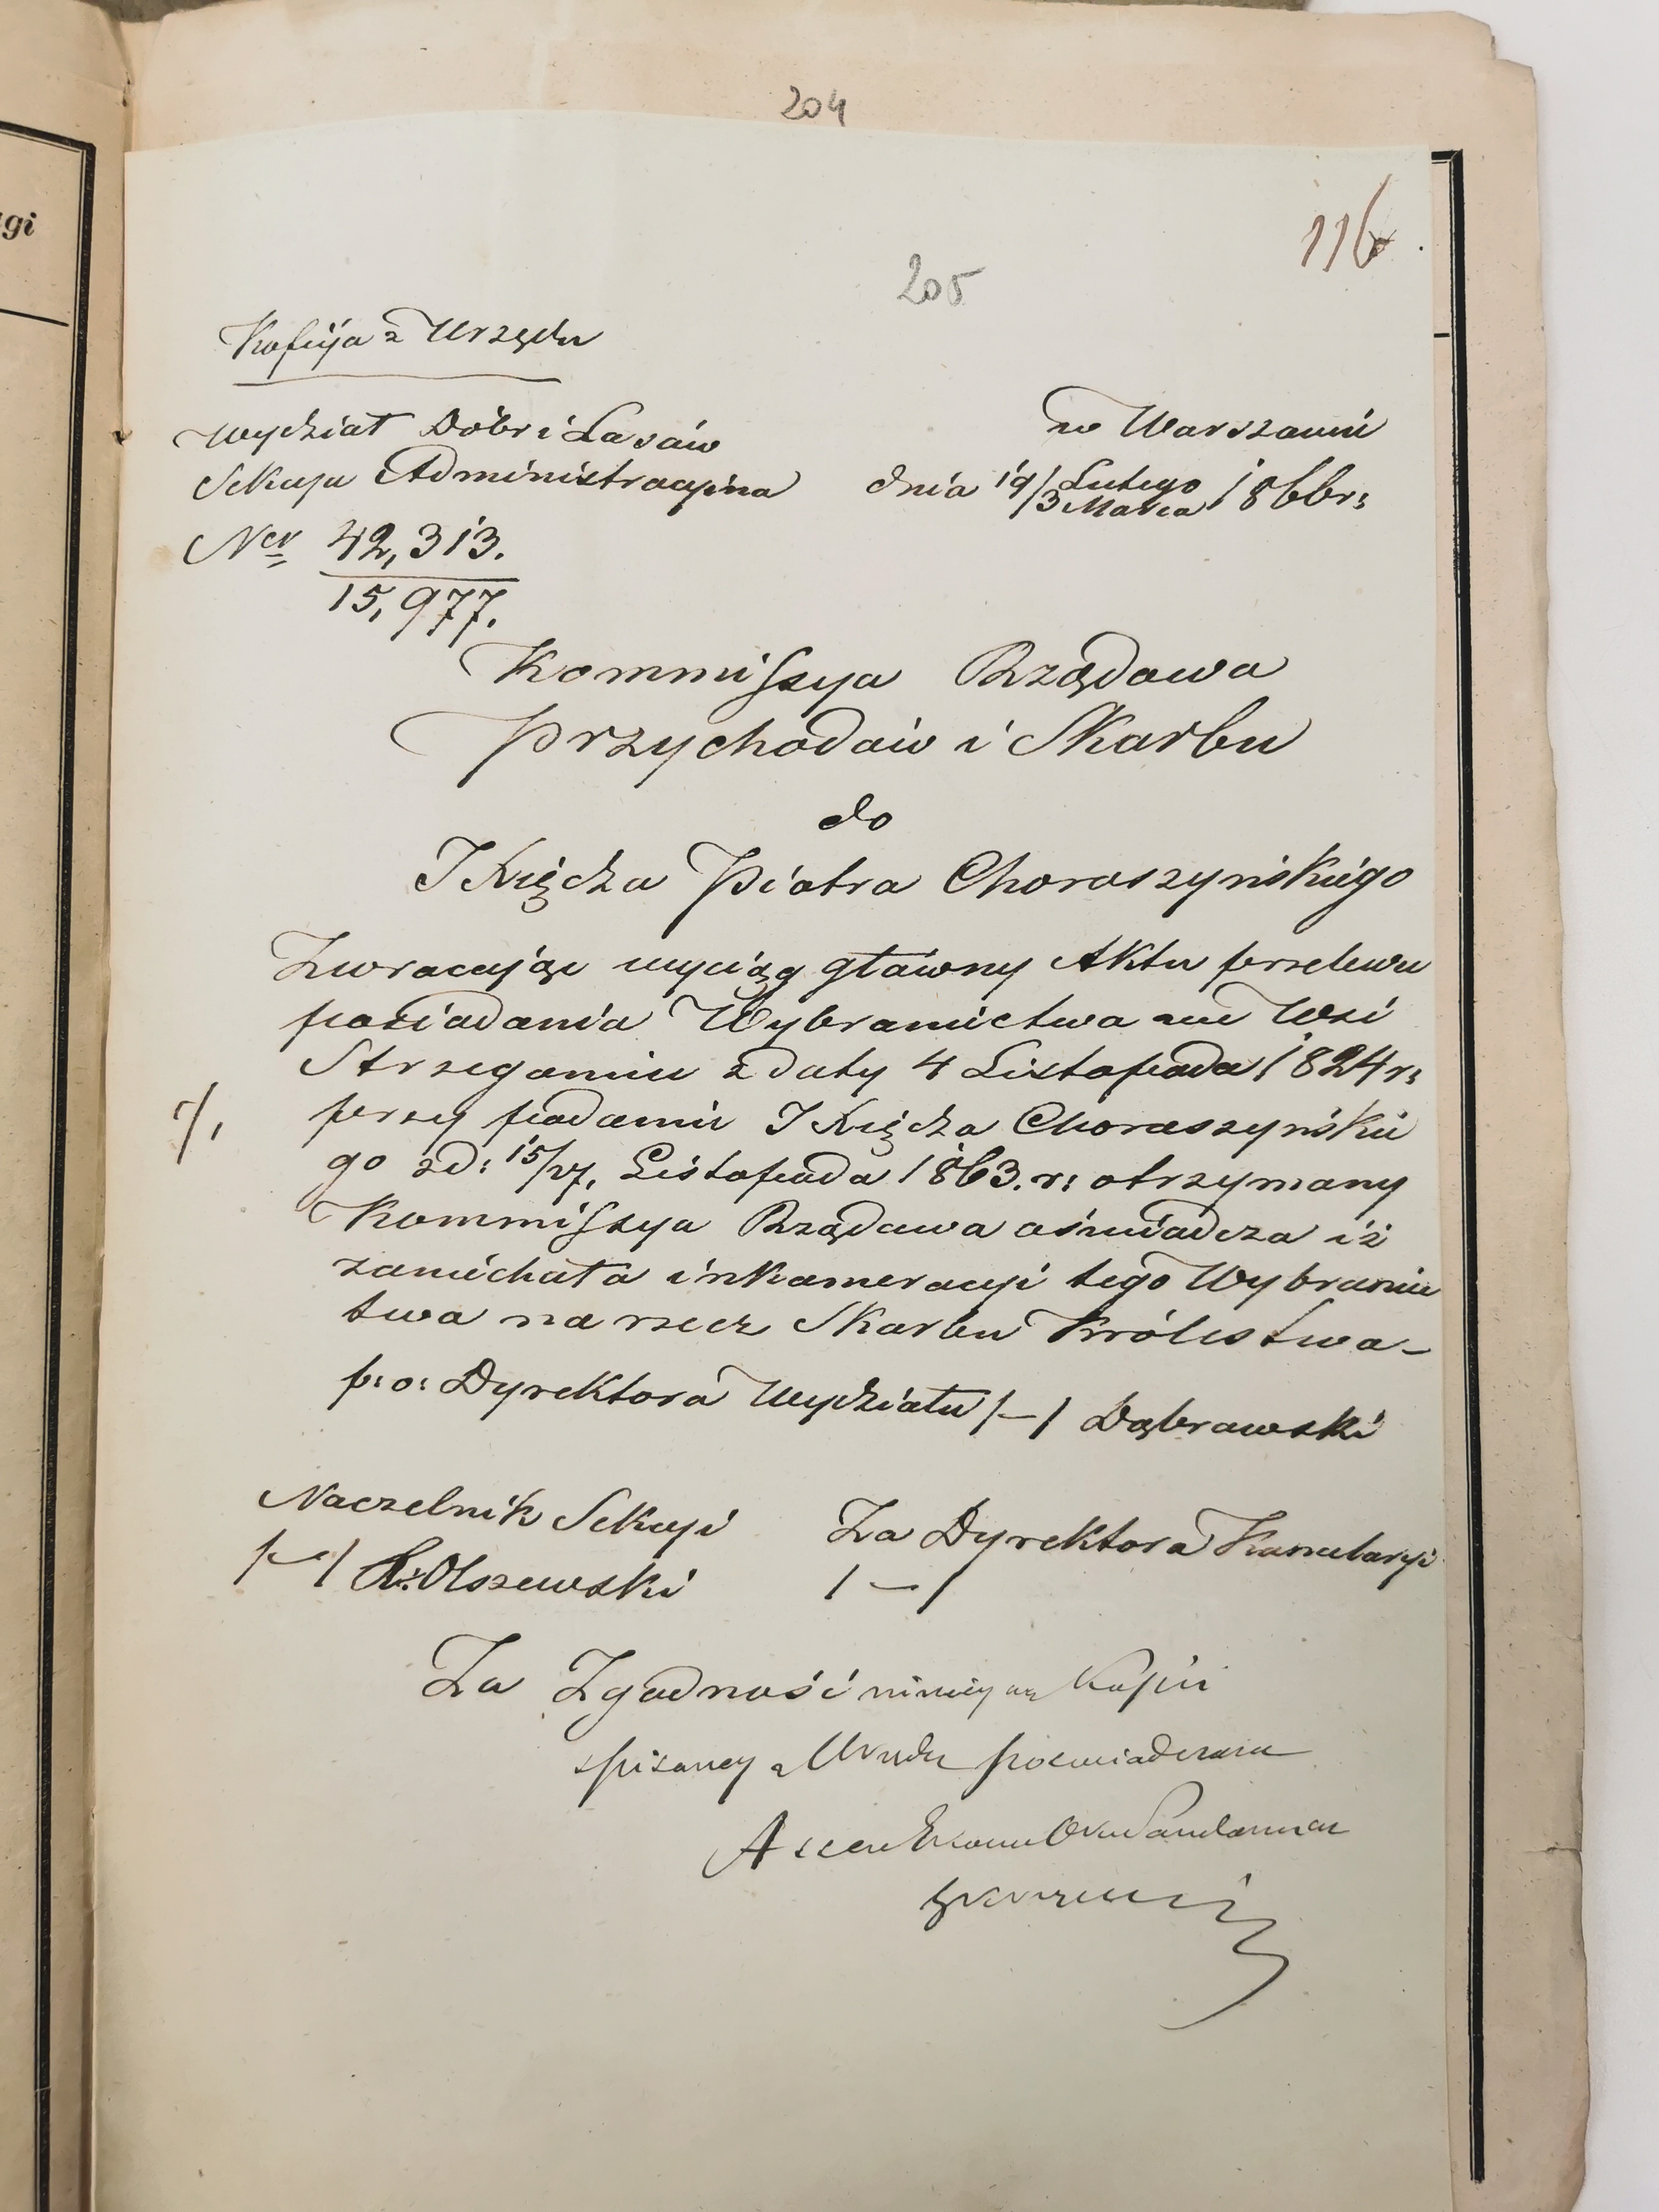 204
gi
116
205
Kopija z Urzędu
Wydział Dóbr i Lasów
w Warszawie
Sekcya Administracyjna
dnia 19/3 Lutego/Marca 1866 r:
Ner 42,313.
15,977.
Kommissya Rządowa
Przychodów i Skarbu
do
JKsiędza Piotra Choroszyńskiego
Zwracając wyciąg główny Aktu przelewu
posiadania Wybraniectwa we Wsi
Strzegomiu z daty 4 Listopada 1824 r:
przy podaniu JKsiędza Choroszyńskie
go z d: 15/27. Listopada 1863. r: otrzymany
Kommissya Rządowa oświadcza iż
zaniechała inkameracyi tego Wybraniec
twa na rzecz Skarbu Królestwa -
p: o: Dyrektora Wydziału /-/ Dąbrowski
Naczelnik Sekcyi
Za Dyrektora Kancelaryi
/-/ Olszewski
/-/
Za Zgodność niniejszej Kopii
spisanej z Urzędu poświadczam